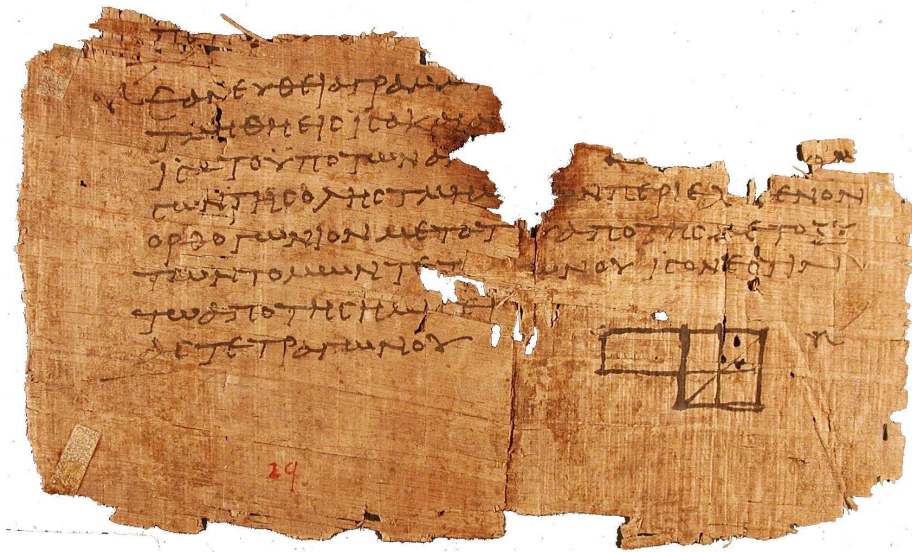 ΕΑΝ ΕΥΘΕΙΑ ΓΡΑΜΜ
ΤΜΗΘΗ ΕΙϹ ΙϹΑ ΚΑΙ Α
ΙϹΑ ΤΟ ΥΠΟ ΤΩΝ Α
ϹΩΝ ΤΗϹ ΟΛΗϹ ΤΜΗΜ ΩΝ ΠΕΡΙΕΧ ΜΕΝΟΝ
ΟΡΘΟΓΩΝΙΟΝ ΜΕΤΟ Τ ΑΠΟ ΤΗϹ ΜΕΤΟΞΥ
ΤΩΝ ΤΟΜΩΝ ΤΕΤ ΩΝΟΥ ΙϹΟΝ ΕϹΤΙΝ
ΤΩ ΑΠΟ ΤΗϹ ΗΜΙ
ΑϹ ΤΕΤΡΑΓΩΝΟΥ
29.